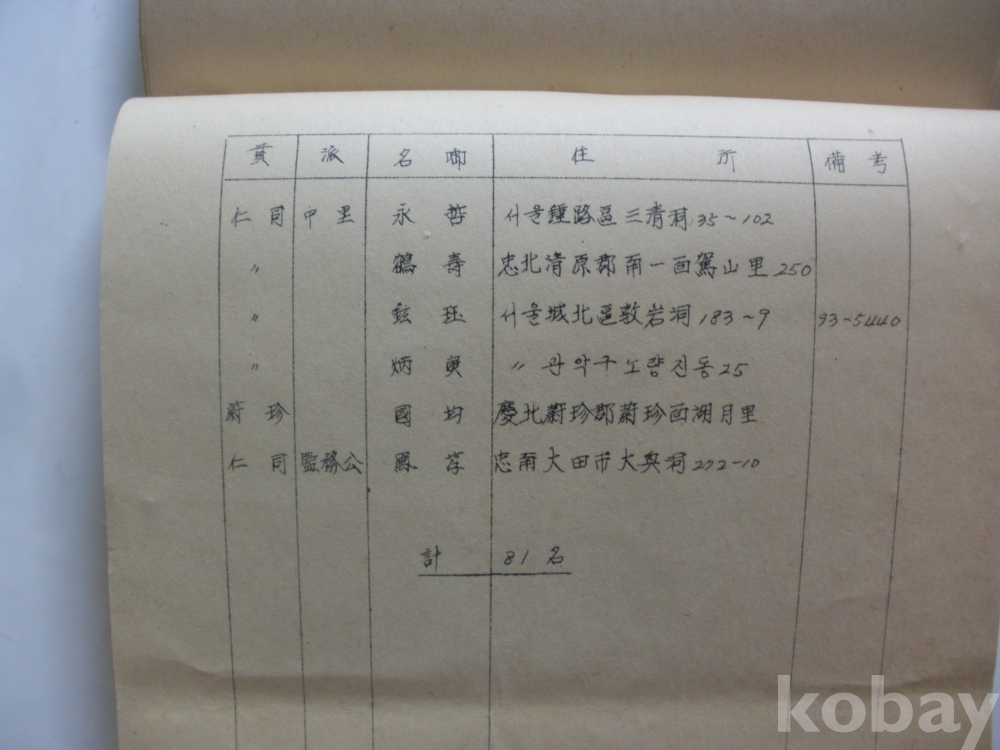 貫 派 名 啣 住 所 備考
仁同 中里 永哲 서울鍾路區三清洞 35~102
〃 鶴壽 忠北清原郡南一面駕山里 250
〃 鉉珏 서울城北區敦岩洞 183~9 93-5440
〃 炳庚 〃 관악구노량진동 25
蔚珍 國均 慶北蔚珍郡蔚珍面湖月里
仁同 監務公 鳳 忠南大田市大興洞 272-10
計 81名
kobay